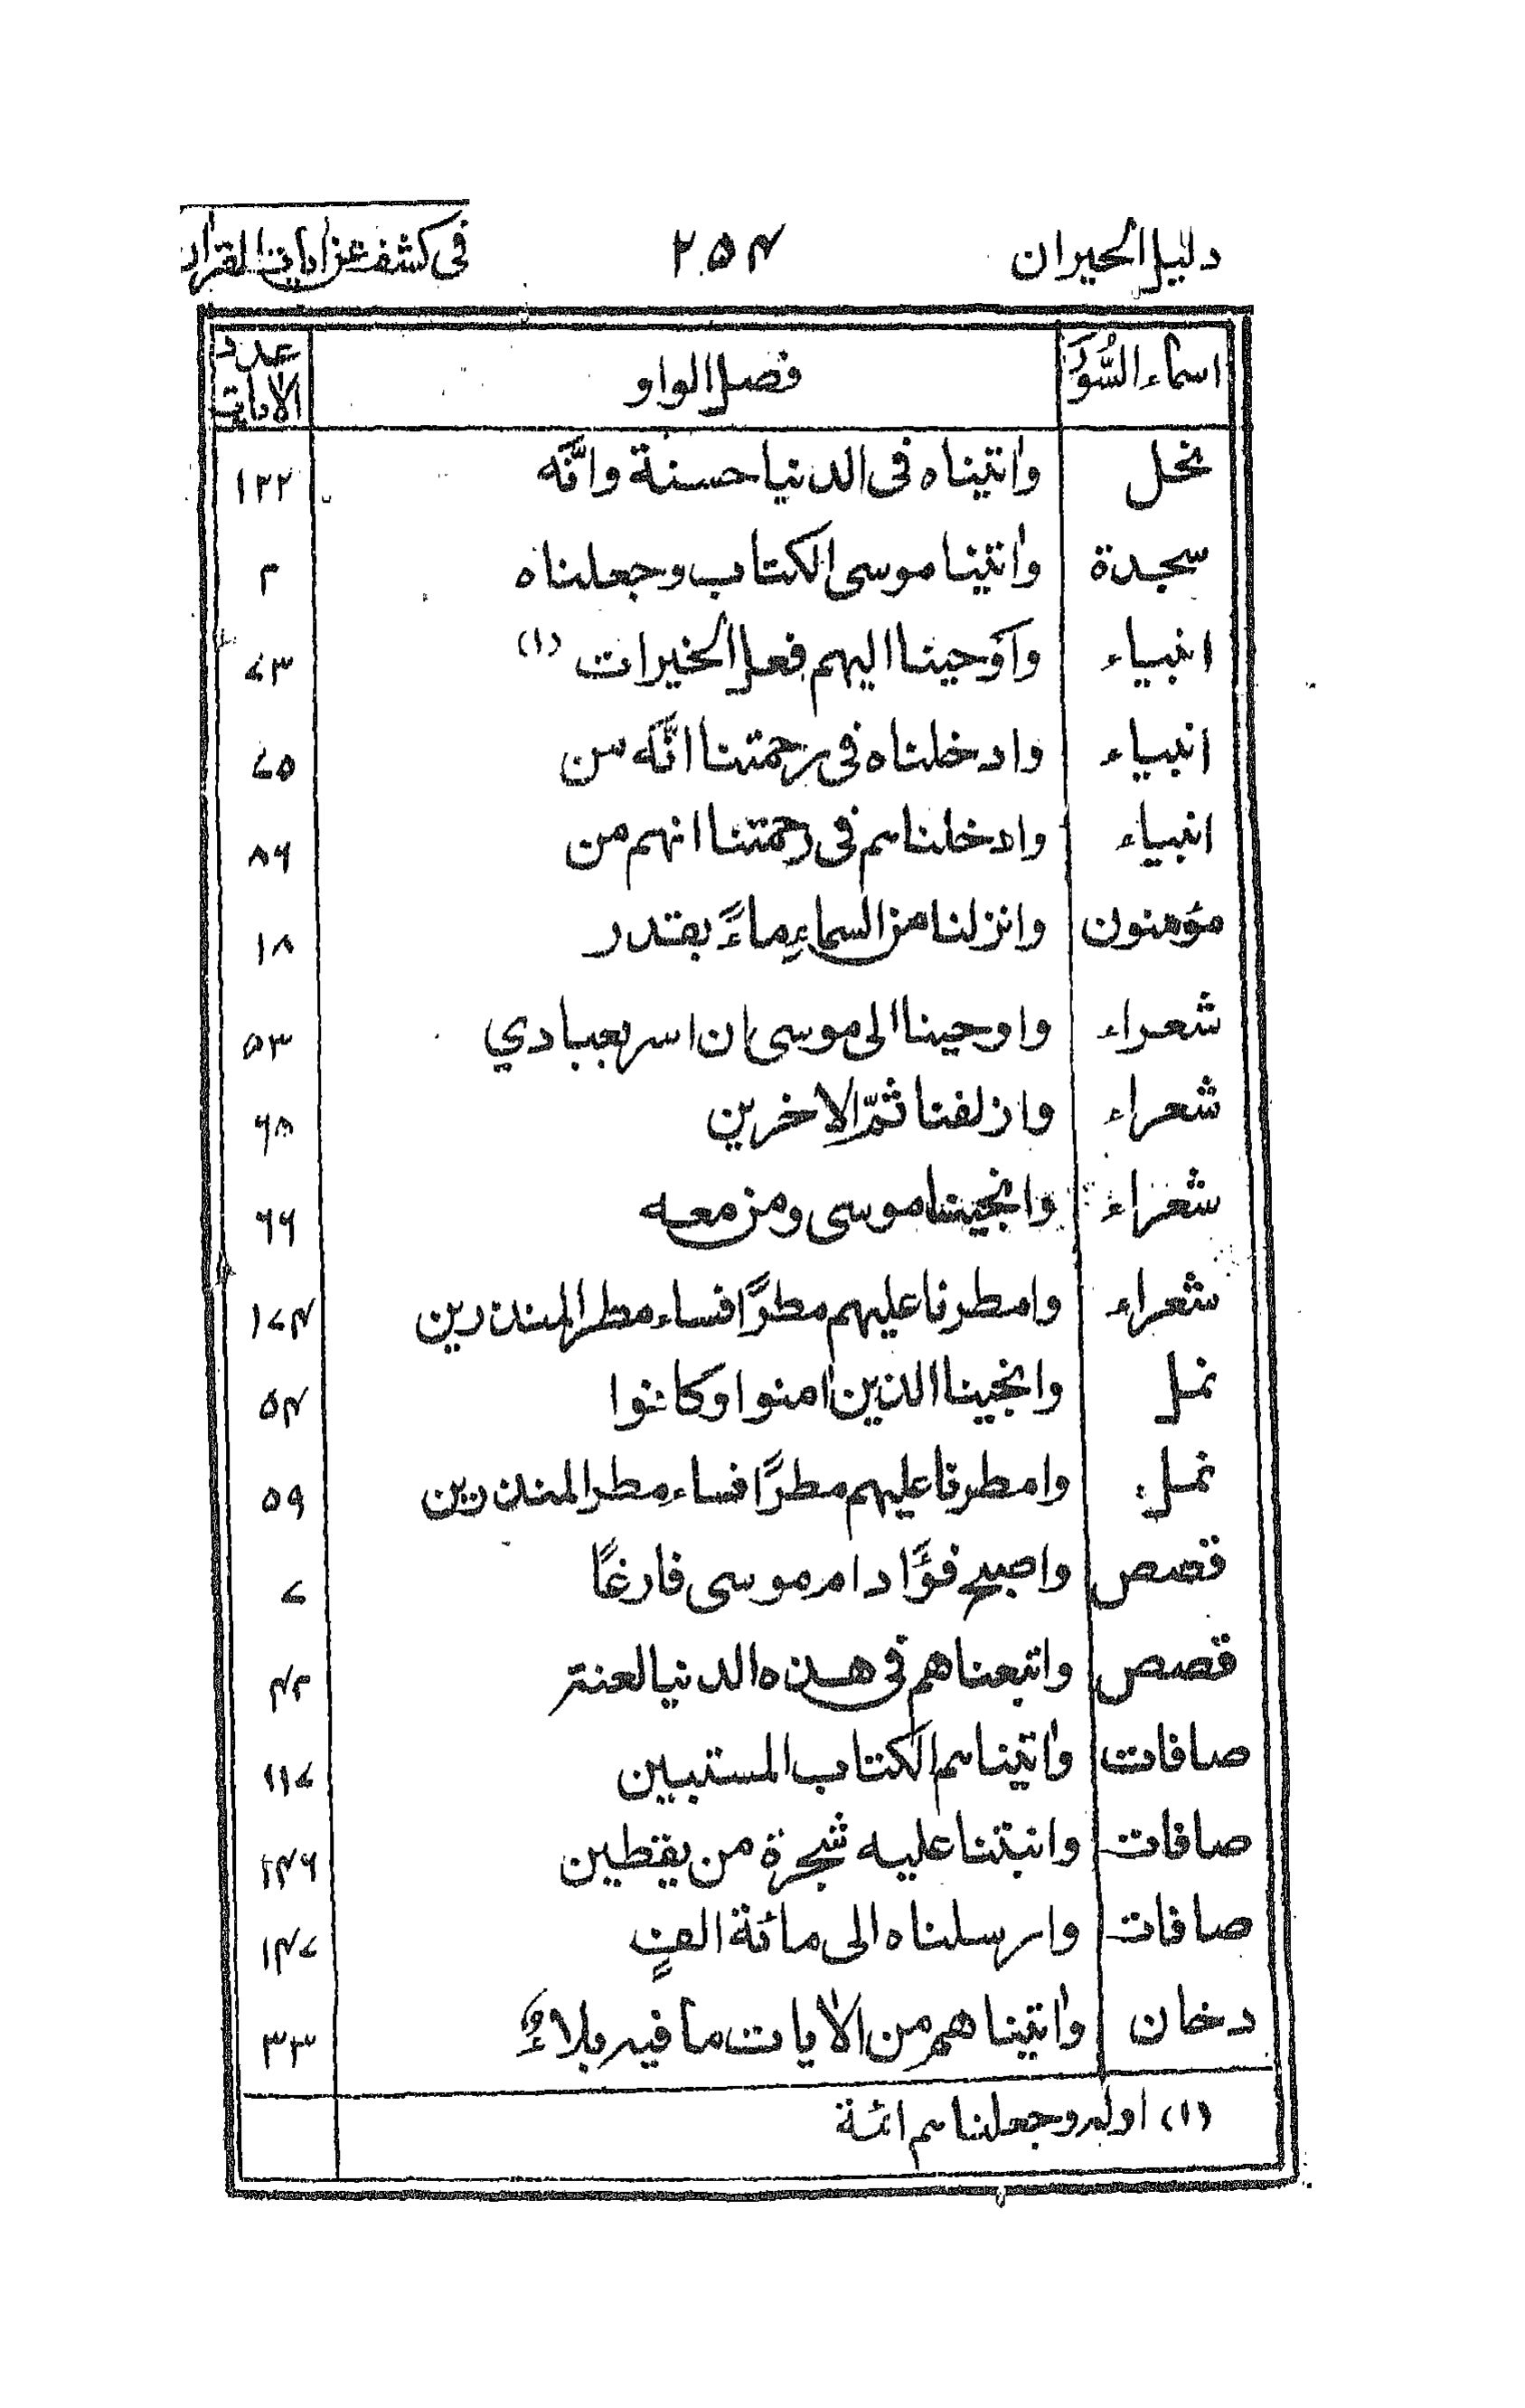 دليل الحيران ٢٥٤ فى كشف عن ايات القران
اسماء السُّوَر فصل الواو عدد الايات
نحل واتيناه فى الدنيا حسنة وانّه ١٢٢
سجدة واتينا موسى الكتاب وجعلناه ٢
انبياء وآوحينا اليهم فعل الخيرات (١) ٧٣
انبياء وادخلناه فى رحمتنا انّه من ٧٥
انبياء وادخلناهم فى رحمتنا انهم من ٨٦
مؤمنون وانزلنا من السماءِ ماءً بقدر ١٨
شعراء واوحينا الى موسى ان اسر بعبادي ٥٣
شعراء وازلفنا ثمّ الاخرين ٦٨
شعراء وانجينا موسى ومن معه ٦٦
شعراء وامطرنا عليهم مطرًا فساء مطر المنذرين ١٧٤
نمل وانجينا الذين امنوا وكانوا ٥٤
نمل وامطرنا عليهم مطرًا فساء مطر المنذرين ٥٩
قصص واصبح فؤاد ام موسى فارغًا ٧
قصص واتبعناهم فى هذه الدنيا لعنة ٤٢
صافات واتيناهم الكتاب المستبين ١١٧
صافات وانبتنا عليه شجرة من يقطين ١٤٦
صافات وارسلناه الى مائة الفٍ ١٤٧
دخان واتيناهم من الايات ما فيه بلاءٌ ٣٣
(١) اوله وجعلناهم ائمة